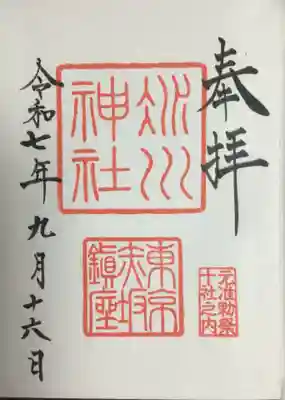 奉拝
氷川
神社
元准勅祭
十社之内
東京
赤坂
鎭座
令和七年九月十六日